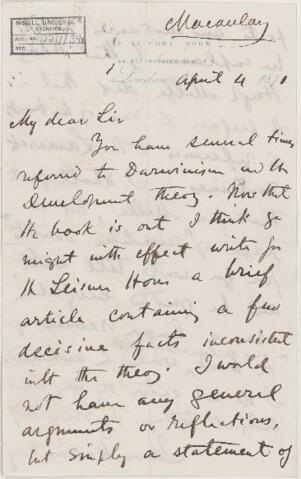 Macaulay
McGILL UNIVERSITY
ARCHIVES
ACC. NO.
REF.
LEISURE HOUR
London April 4 1870
My dear Sir
You have several times
referred to Darwinism and the
Development theory. Now that
the book is out I think yo
might with effect write for
the Leisure Hour a brief
article containing a few
decisive facts inconsistent
with the theory. I would
not have any general
arguments or reflections,
but simply a statement of